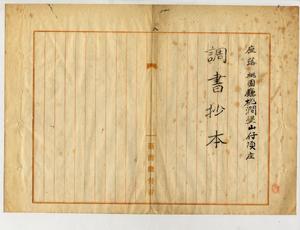 座落桃園縣桃澗堡山仔頂庄
調書抄本